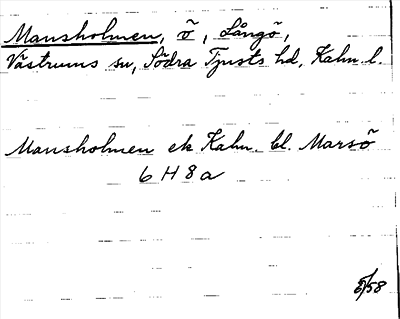 Mansholmen, ö, Långö,
Västrums sn, Södra Tjusts hd, Kalm. l.
Mansholmen ek Kalm. bl. Marsö
6 H 8 a
/58